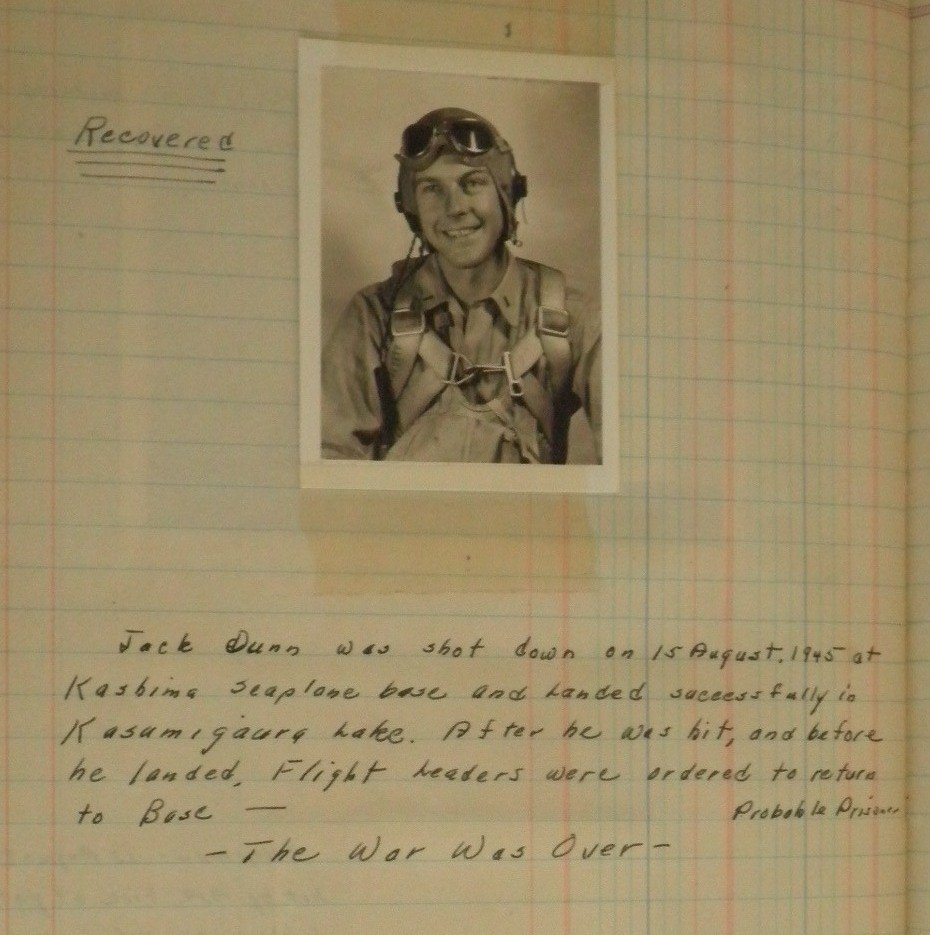 Recovered
Jack Dunn was shot down on 15 August, 1945 at
Kashima Seaplane base and landed successfully in
Kasumigaura Lake. After he was hit, and before
he landed, Flight Leaders were ordered to return
to Base —
Probable Prisoner
- The War Was Over -